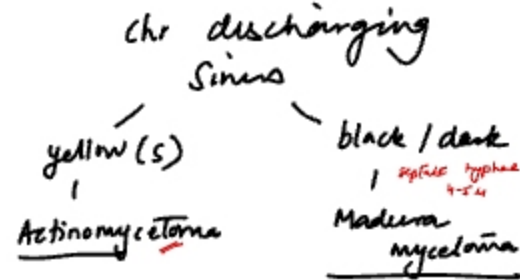 chr discharging
Sinus
yellow (s)
Actinomycetoma
black / dark
septate hyphae
4-5 μ
Madura
mycetoma